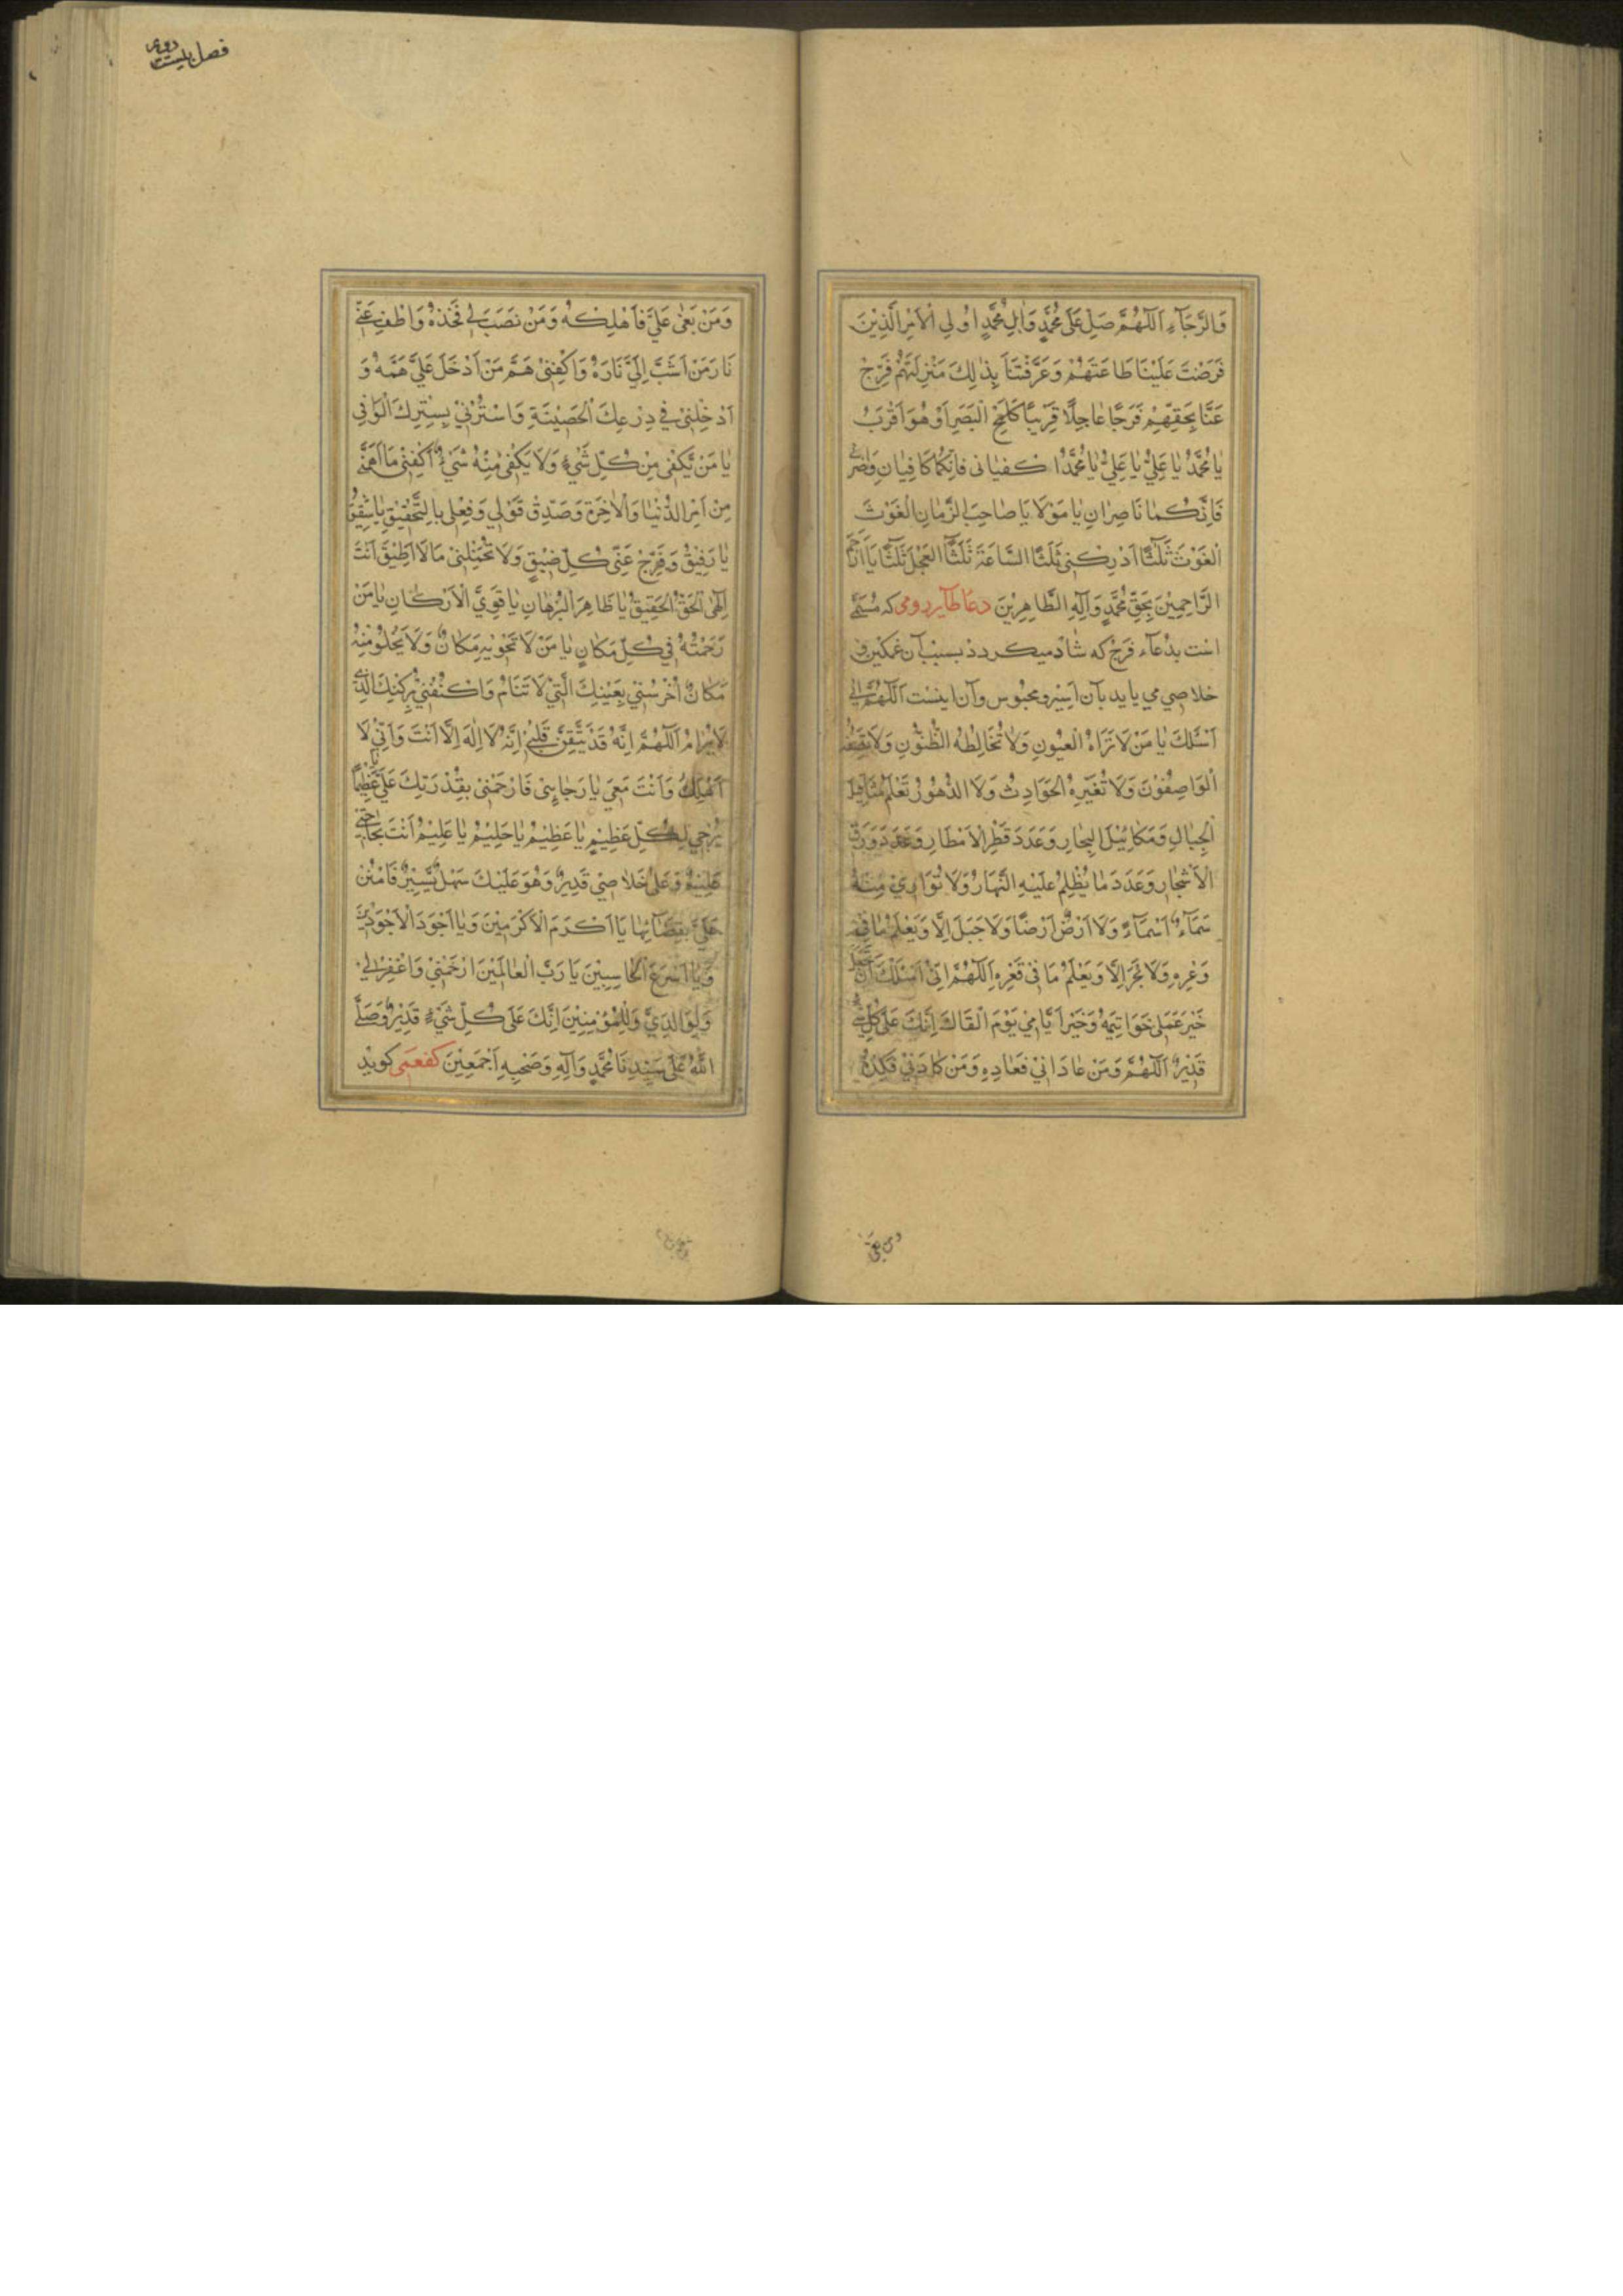 وَالرَّجَآءِ اَللّٰهُمَّ صَلِّ عَلٰى مُحَمَّدٍ وَاٰلِ مُحَمَّدٍ اُولِي الْاَمْرِ الَّذِيْنَ
فَرَضْتَ عَلَيْنَا طَاعَتَهُمْ وَعَرَّفْتَنَا بِذٰلِكَ مَنْزِلَتَهُمْ فَرِّجْ
عَنَّا بِحَقِّهِمْ فَرَجًا عَاجِلًا قَرِيْبًا كَلَمْحِ الْبَصَرِ اَوْ هُوَ اَقْرَبُ
يَا مُحَمَّدُ يَا عَلِيُّ يَا عَلِيُّ يَا مُحَمَّدُ اكفياني فَاِنَّكُمَا كَافِيَانِ
فَاِنَّكُمَا نَاصِرَانِ يَا مَوْلَايَا صَاحِبَ الزَّمَانِ الْغَوْثَ
اَلْغَوْثَ ثَلٰثًا اَدْرِكْنِي ثَلٰثًا السَّاعَةَ ثَلٰثًا الْعَجَلَ ثَلٰثًا يَا اَرْحَمَ
الرَّاحِمِيْنَ بِحَقِّ مُحَمَّدٍ وَآلِهِ الطَّاهِرِيْنَ دعا طاير رومى كه مُسَمّٰى
است بدُعآء فرج كه شاد ميكردد بسبب آن غمكين و
خلاصي مي يابد بآن اسير و محبوس وآن اينست اَللّٰهُمَّ اِنِّي
اَسْئَلُكَ يَا مَنْ لَا تَرَاهُ الْعُيُونُ وَلَا تُخَالِطُهُ الظُّنُوْنُ وَلَا يَصِفُهُ
الْوَاصِفُوْنَ وَلَا تُغَيِّرُهُ الْحَوَادِثُ وَلَا الدُّهُوْرُ تَعْلَمُ مَثَاقِيْلَ
الْجِبَالِ وَمَكَايِيْلَ الْبِحَارِ وَعَدَدَ قَطْرِ الْاَمْطَارِ وَعَدَدَ وَرَقِ
الْاَشْجَارِ وَعَدَدَ مَا يُظْلِمُ عَلَيْهِ النَّهَارُ وَلَا تُوَارِيْ مِنْهُ
سَمَآءٌ اَسْمَآءً وَلَا اَرْضٌ اَرْضًا وَلَا جَبَلَ اِلَّا وَيَعْلَمُ مَا فِيْ
وَعْرِهِ وَلَا بَحْرَ اِلَّا وَيَعْلَمُ مَا فِيْ قَعْرِهِ اَللّٰهُمَّ اِنِّي اَسْئَلُكَ اَنْ تَجْعَلَ
خَيْرَ عَمَلِي خَوَاتِيْمَهُ وَخَيْرَ اَيَّامِيْ يَوْمَ الْقَاكَ اِنَّكَ عَلٰى كُلِّ شَيْءٍ
قَدِيْرٌ اَللّٰهُمَّ وَمَنْ عَادَانِيْ فَعَادِهِ وَمَنْ كَادَنِيْ فَكِدْهُ
ومن بغى
فصل بيست دوم
وَمَنْ بَغٰى عَلَيَّ فَاَهْلِكْهُ وَمَنْ نَصَبَ لِي فَخُذْهُ وَاطْفِ عَنِّي
نَارَ مَنْ اَشَبَّ اِلَيَّ نَارَهُ وَاكْفِنِيْ هَمَّ مَنْ اَدْخَلَ عَلَيَّ هَمَّهُ وَ
اَدْخِلْنِيْ فِي دِرْعِكَ الْحَصِيْنَةِ وَاسْتُرْنِيْ بِسِتْرِكَ الْوَافِي
يَا مَنْ يَكْفِي مِنْ كُلِّ شَيْءٍ وَلَا يَكْفِي مِنْهُ شَيْءٌ اَكْفِنِيْ مَا اَهَمَّنِي
مِنْ اَمْرِ الدُّنْيَا وَالْاٰخِرَةِ وَصَدِّقْ قَوْلِي وَفِعْلِي بِالتَّحْقِيْقِ يَا شَفِيْقُ
يَا رَفِيْقُ وَفَرِّجْ عَنِّي كُلَّ ضِيْقٍ وَلَا تُحَمِّلْنِيْ مَا لَا اُطِيْقُ اَنْتَ
اِلٰهِيَ الْحَقُّ الْحَقِيْقُ يَا ظَاهِرَ الْبُرْهَانِ يَا قَوِيَّ الْاَرْكَانِ يَا مَنْ
رَحْمَتُهُ فِي كُلِّ مَكَانٍ يَا مَنْ لَا تَحْوِيْهِ مَكَانٌ وَلَا يَخْلُو مِنْهُ
مَكَانٌ اُحْرُسْنِي بِعَيْنِكَ الَّتِيْ لَا تَنَامُ وَاكْنُفْنِيْ بِرُكْنِكَ الَّذِيْ
لَا يُرَامُ اَللّٰهُمَّ اِنَّهُ قَدْ تَيَقَّنَ قَلْبِيْ اِنَّهُ لَا اِلٰهَ اِلَّا اَنْتَ وَاَنِّي لَا
اَهْلِكُ وَاَنْتَ مَعِيَ يَا رَجَائِيْ فَارْحَمْنِيْ بِقُدْرَتِكَ عَلَيَّ يَا عَظِيْمًا
يُرْجٰى لِكُلِّ عَظِيْمٍ يَا عَظِيْمُ يَا حَلِيْمُ يَا عَلِيْمُ اَنْتَ بِحَاجَتِيْ
عَلِيْمٌ وَعَلٰى خَلَاصِيْ قَدِيْرٌ وَهُوَ عَلَيْكَ سَهْلٌ يَسِيْرٌ فَامْنُنْ
عَلَيَّ بِقَضَائِهَا يَا اَكْرَمَ الْاَكْرَمِيْنَ وَيَا اَجْوَدَ الْاَجْوَدِيْنَ
وَيَا اَسْرَعَ الْحَاسِبِيْنَ يَا رَبَّ الْعَالَمِيْنَ ارْحَمْنِيْ وَاغْفِرْلِي
وَلِوَالِدَيَّ وَلِلْمُؤْمِنِيْنَ اِنَّكَ عَلٰى كُلِّ شَيْءٍ قَدِيْرٌ وَصَلَّى
اللّٰهُ عَلٰى سَيِّدِنَا مُحَمَّدٍ وَآلِهِ وَصَحْبِهِ اَجْمَعِيْنَ كفعمى كويد